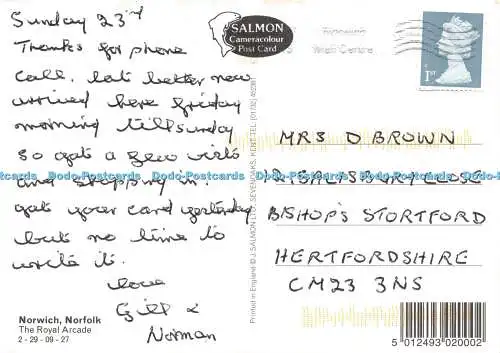 Sunday 23rd
Thanks for phone
call. lots better now
arrived here friday
morning till sunday
so got a few visits
and shopping in.
got your card yesterday
but no time to
write it.
love
Gill &
Norman
Norwich, Norfolk
The Royal Arcade
2 - 29 - 09 - 27
SALMON
Cameracolour
Post Card
Printed in England © J. SALMON LTD., SEVENOAKS, KENT. TEL: (01732) 452381
Mail Centre
1ST
MRS D BROWN
CLOSE
BISHOP'S STORTFORD
HERTFORDSHIRE
CM23 3NS
5 012493 020002
Dodo-Postcards Dodo-Postcards Dodo-Postcards Dodo-Postcards Dodo-Postcards